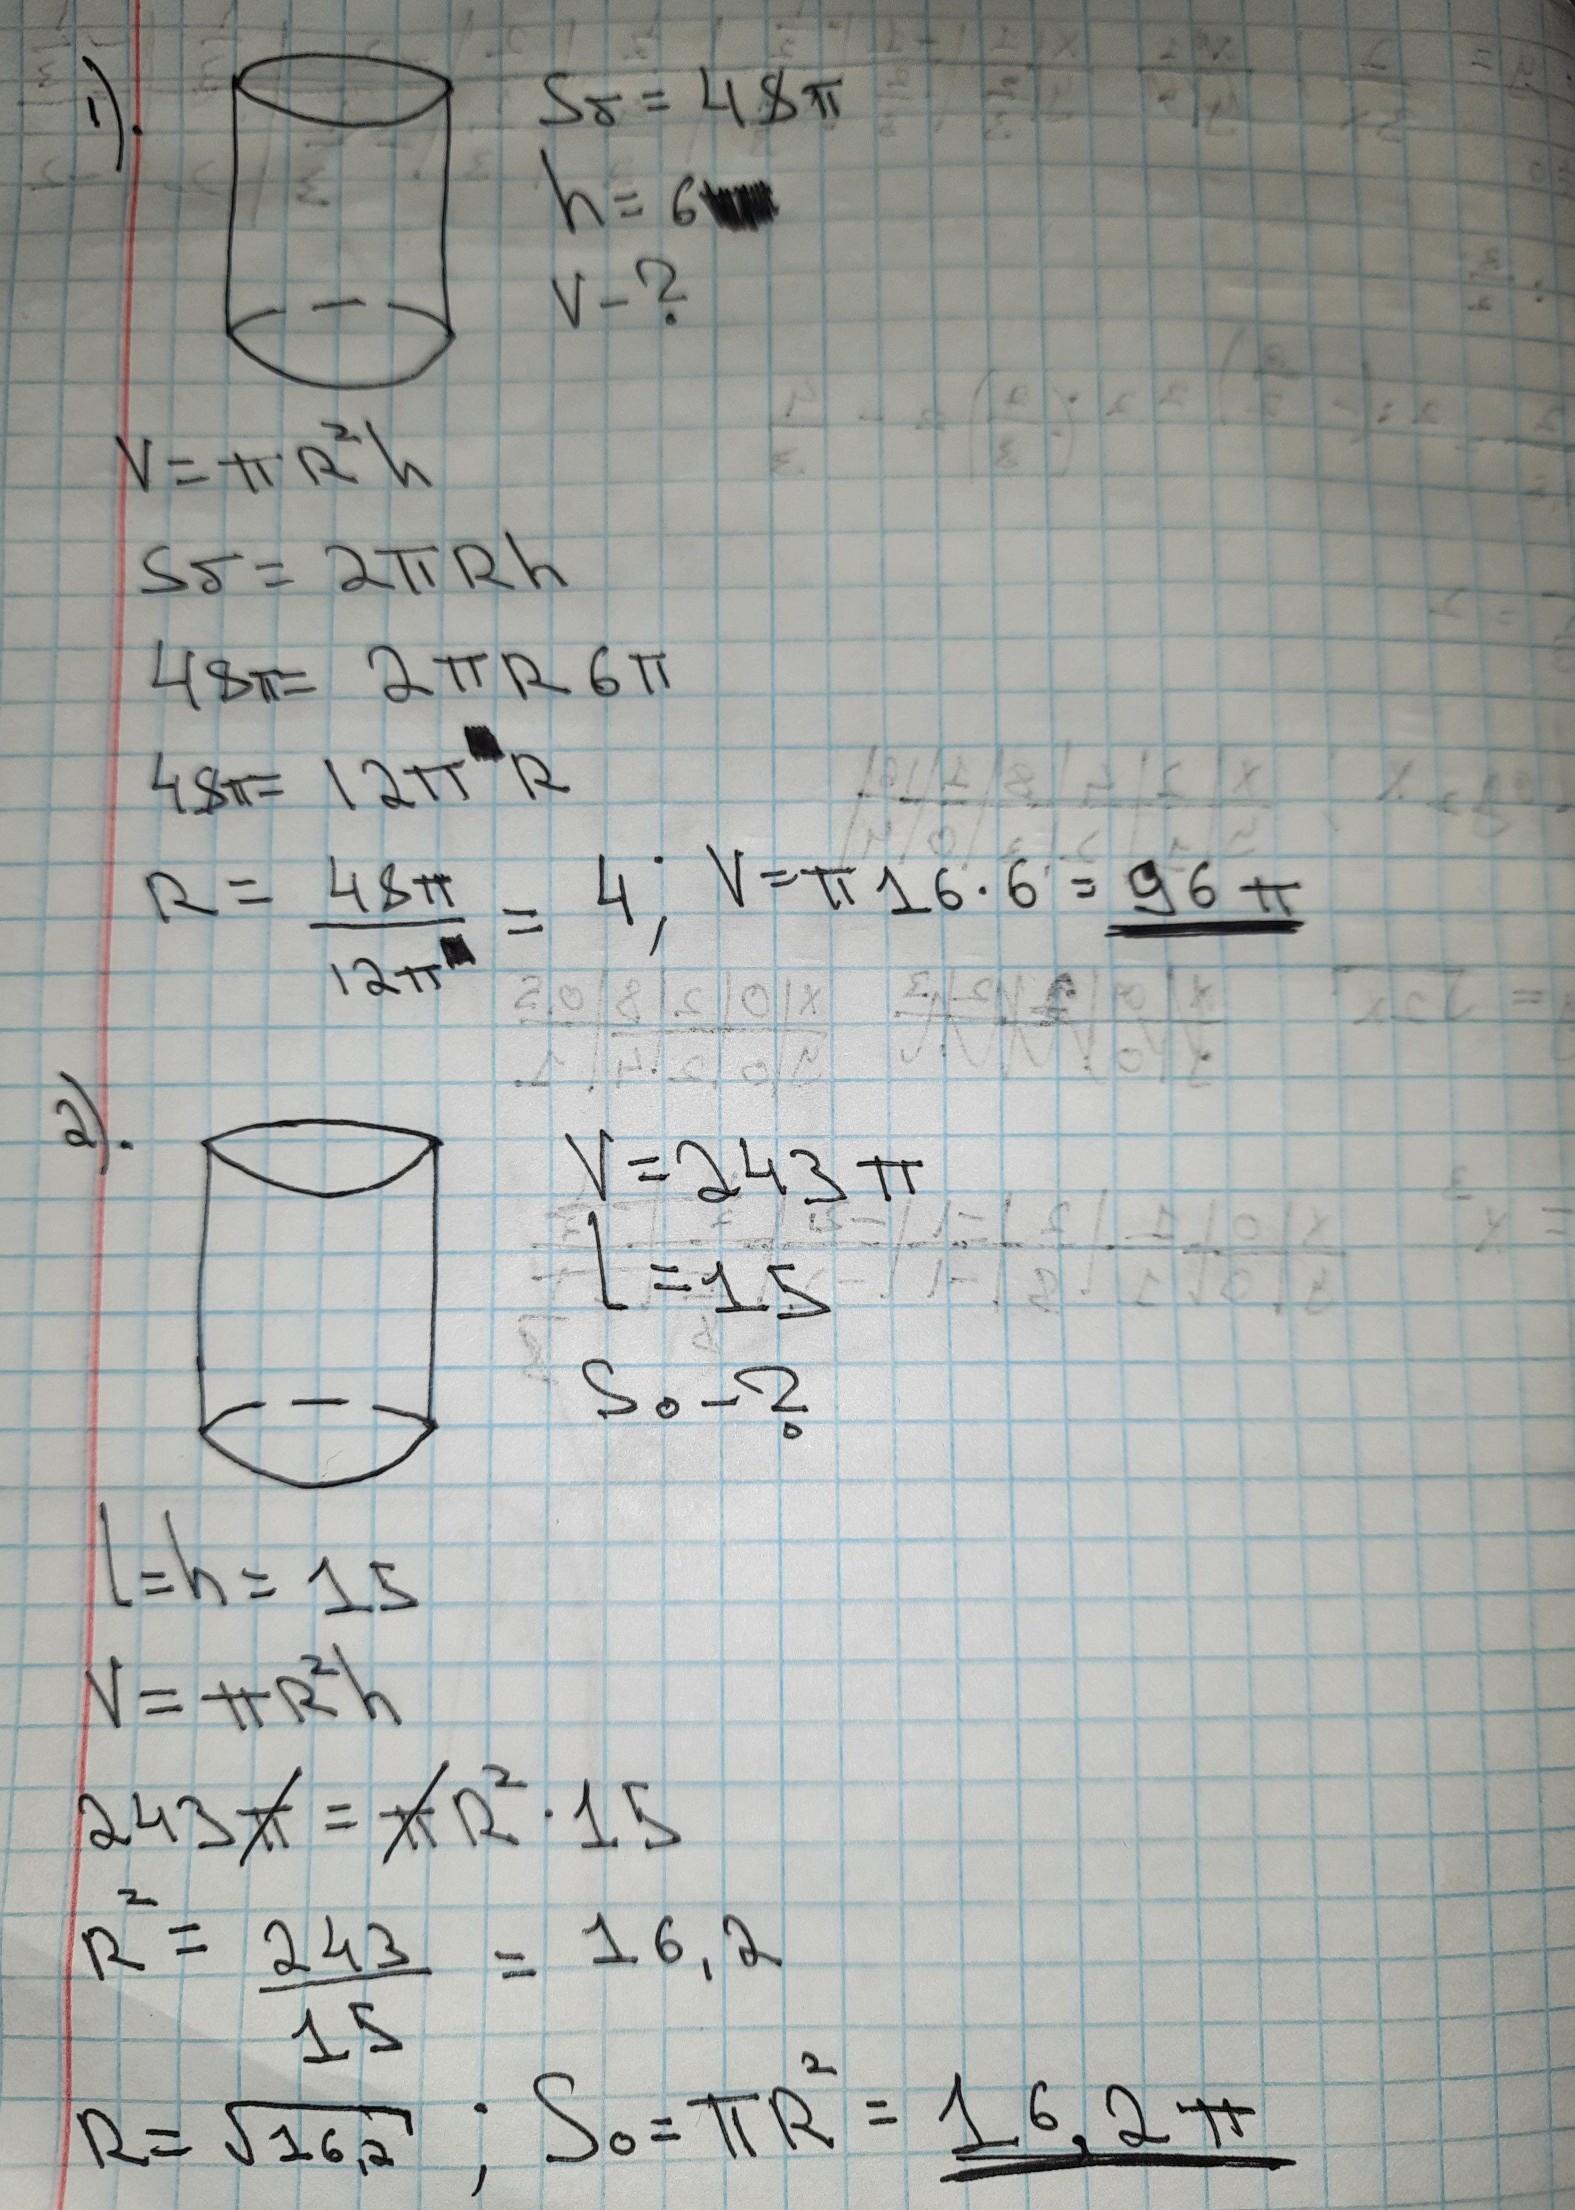 1).
Sб = 48π
h = 6
V - ?
V = πR²h
Sб = 2πRh
48π = 2πR6π
48π = 12πR
R = 48π/12π = 4; V = π16·6 = 96π
2).
V = 243π
l = 15
S₀ - ?
l = h = 15
V = πR²h
243π = πR²·15
R² = 243/15 = 16,2
R = √16,2 ; S₀ = πR² = 16,2π